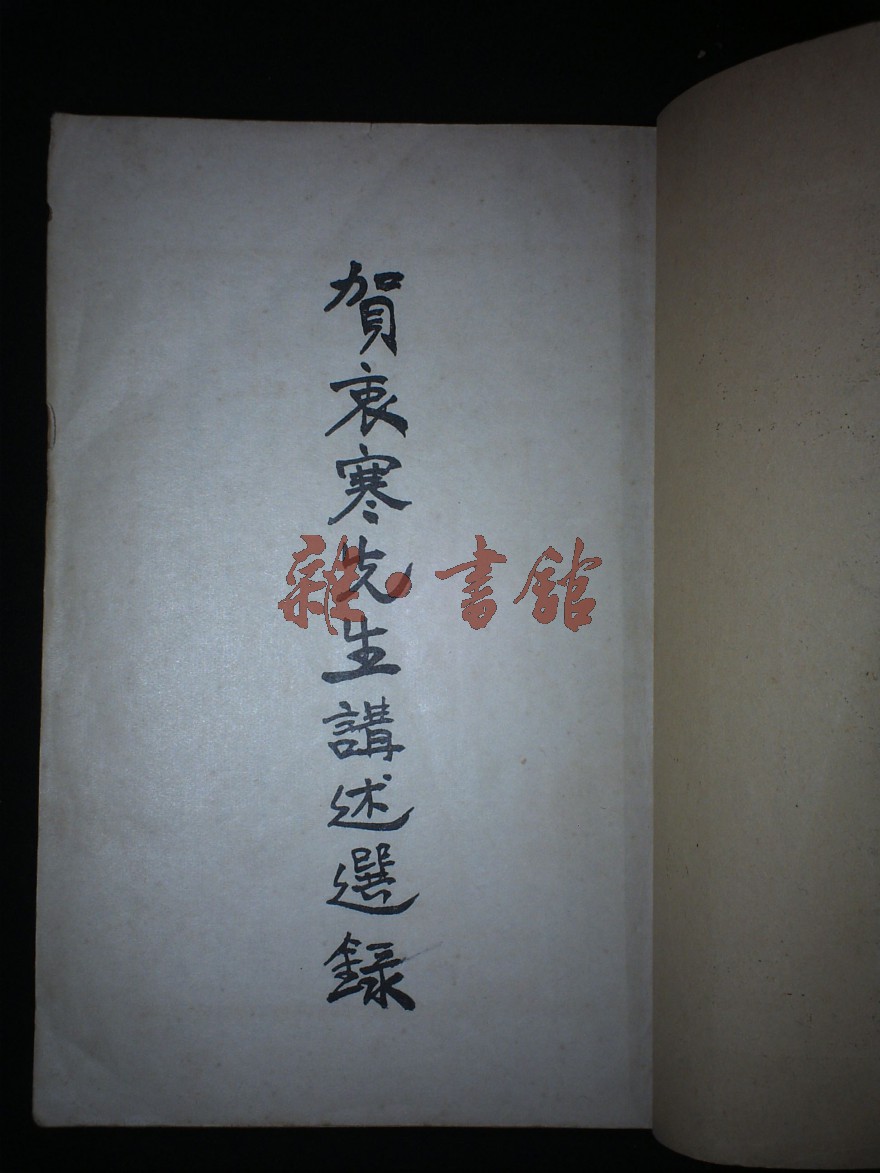 賀衷寒先生講述選録
雜·書館